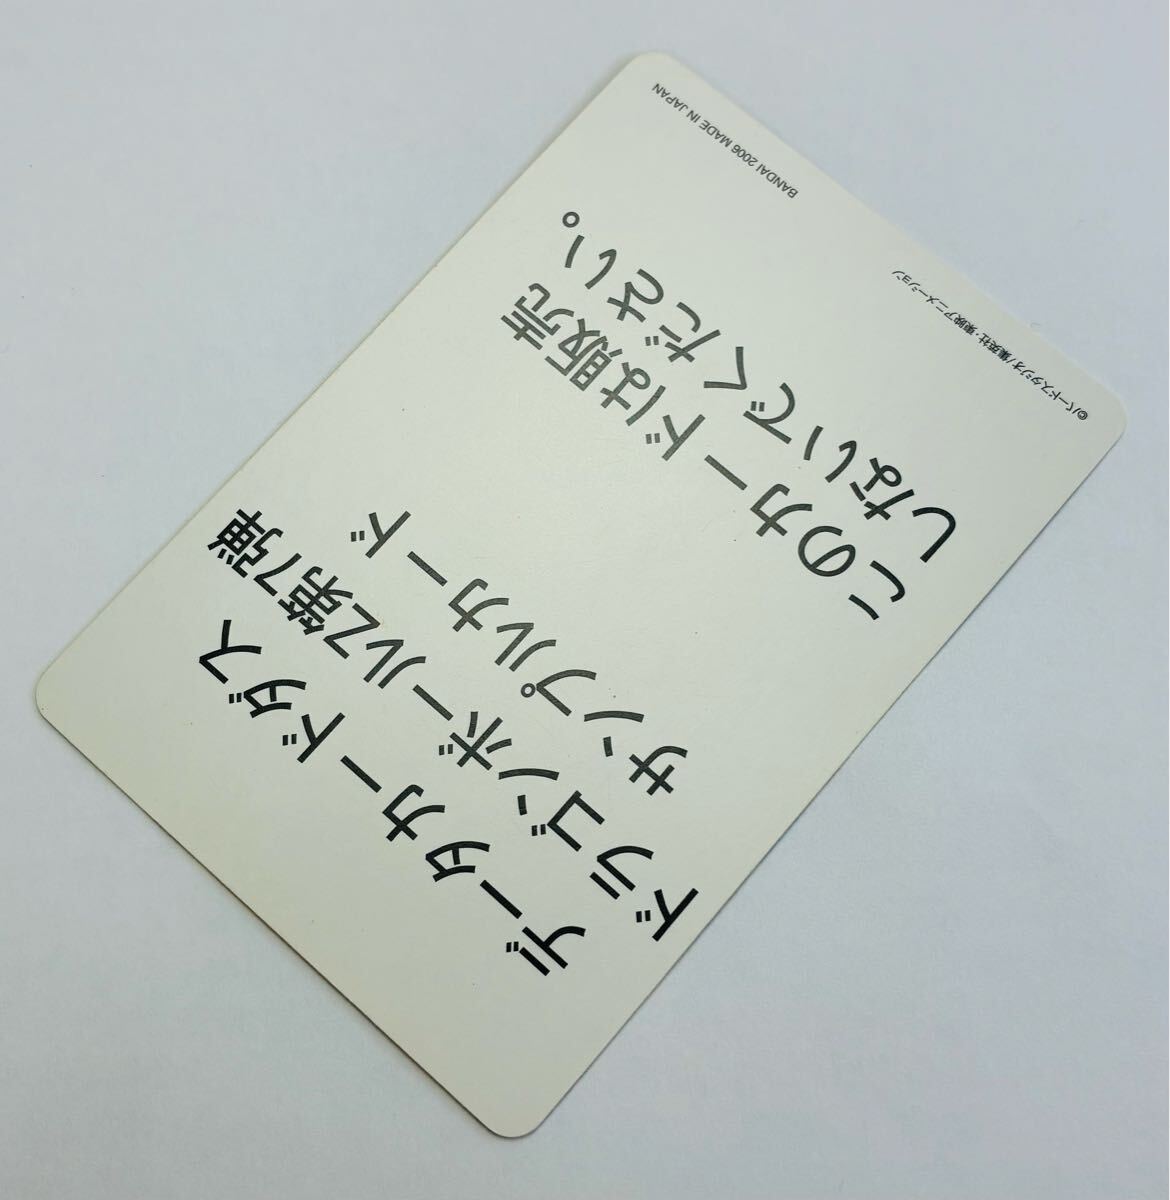 データカードダス
ドラゴンボールZ第7弾
サンプルカード
このカードは販売
しないでください。
©バードスタジオ/集英社・東映アニメーション
BANDAI 2006 MADE IN JAPAN